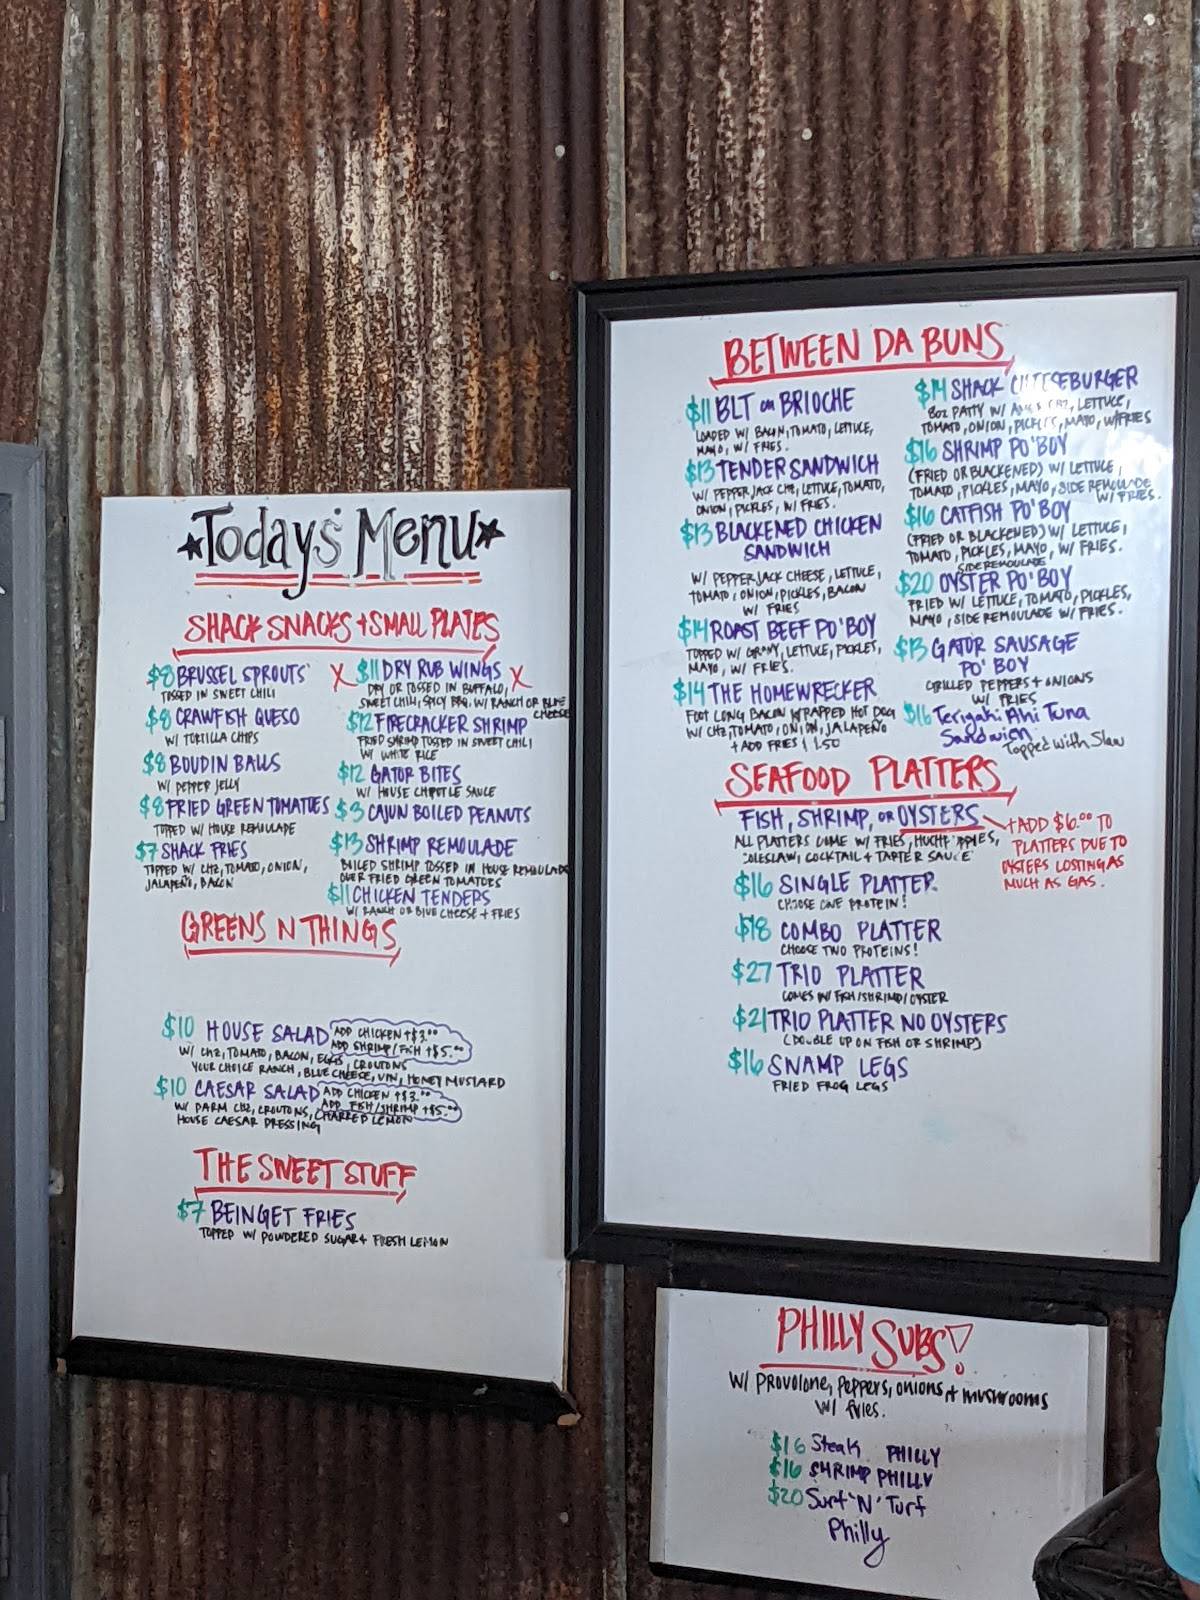 Today's Menu
SHACK SNACKS + SMALL PLATES
$8 BRUSSEL SPROUTS
TOSSED IN SWEET CHILI
$8 CRAWFISH QUESO
W/ TORTILLA CHIPS
$8 BOUDIN BALLS
W/ PEPPER JELLY
$8 FRIED GREEN TOMATOES
TOPPED W/ HOUSE REMOULADE
$7 SHACK FRIES
TOPPED W/ CHZ, TOMATO, ONION,
JALAPEÑO, BACON
X $11 DRY RUB WINGS X
DRY OR TOSSED IN BUFFALO,
SWEET CHILI, SPICY BBQ. W/ RANCH OR BLUE
CHEESE
$12 FIRECRACKER SHRIMP
FRIED SHRIMP TOSSED IN SWEET CHILI
W/ WHITE RICE
$12 GATOR BITES
W/ HOUSE CHIPOTLE SAUCE
$3 CAJUN BOILED PEANUTS
$13 SHRIMP REMOULADE
BOILED SHRIMP TOSSED IN HOUSE REMOULADE
OVER FRIED GREEN TOMATOES
$11 CHICKEN TENDERS
W/ RANCH OR BLUE CHEESE + FRIES
GREENS N THINGS
$10 HOUSE SALAD ADD CHICKEN +$3.00
ADD SHRIMP/FISH +$5.00
W/ CHZ, TOMATO, BACON, EGGS, CROUTONS
YOUR CHOICE RANCH, BLUE CHEESE, VIN, HONEY MUSTARD
$10 CAESAR SALAD ADD CHICKEN +$3.00
ADD FISH/SHRIMP +$5.00
W/ PARM CHZ, CROUTONS, CHARRED LEMON
HOUSE CAESAR DRESSING
THE SWEET STUFF
$7 BEINGET FRIES
TOPPED W/ POWDERED SUGAR + FRESH LEMON
BETWEEN DA BUNS
$11 BLT on BRIOCHE
LOADED W/ BACON, TOMATO, LETTUCE,
MAYO, W/ FRIES.
$13 TENDER SANDWICH
W/ PEPPER JACK CHZ, LETTUCE, TOMATO,
ONION, PICKLES, W/ FRIES.
$13 BLACKENED CHICKEN
SANDWICH
W/ PEPPERJACK CHEESE, LETTUCE,
TOMATO, ONION, PICKLES, BACON
W/ FRIES
$14 ROAST BEEF PO'BOY
TOPPED W/ GRAVY, LETTUCE, PICKLES,
MAYO, W/ FRIES.
$14 THE HOMEWRECKER
FOOT LONG BACON WRAPPED HOT DOG
W/ CHZ, TOMATO, ONION, JALAPEÑO
+ ADD FRIES $1.50
$14 SHACK CHEESEBURGER
8OZ PATTY W/ CHZ, LETTUCE,
TOMATO, ONION, PICKLES, MAYO, W/FRIES
$16 SHRIMP PO'BOY
(FRIED OR BLACKENED) W/ LETTUCE,
TOMATO, PICKLES, MAYO, SIDE REMOULADE
W/ FRIES.
$16 CATFISH PO'BOY
(FRIED OR BLACKENED) W/ LETTUCE,
TOMATO, PICKLES, MAYO, W/ FRIES.
SIDE REMOULADE
$20 OYSTER PO'BOY
FRIED W/ LETTUCE, TOMATO, PICKLES,
MAYO, SIDE REMOULADE W/ FRIES.
$13 GATOR SAUSAGE
PO'BOY
GRILLED PEPPERS + ONIONS
W/ FRIES
$16 Teriyaki Ahi Tuna
Sandwich
Topped with Slaw
SEAFOOD PLATTERS
FISH, SHRIMP, OR OYSTERS
ALL PLATTERS COME W/ FRIES, HUSHPUPPIES,
COLESLAW, COCKTAIL + TARTER SAUCE
+ADD $6.00 TO
PLATTERS DUE TO
OYSTERS COSTING AS
MUCH AS GAS.
$16 SINGLE PLATTER
CHOOSE ONE PROTEIN!
$18 COMBO PLATTER
CHOOSE TWO PROTEINS!
$27 TRIO PLATTER
COMES W/ FISH/SHRIMP/OYSTER
$21 TRIO PLATTER NO OYSTERS
(DOUBLE UP ON FISH OR SHRIMP)
$16 SWAMP LEGS
FRIED FROG LEGS
PHILLY SUBS!
W/ PROVOLONE, PEPPERS, ONIONS + MUSHROOMS
W/ FRIES.
$16 Steak PHILLY
$16 SHRIMP PHILLY
$20 Surf 'N' Turf
Philly